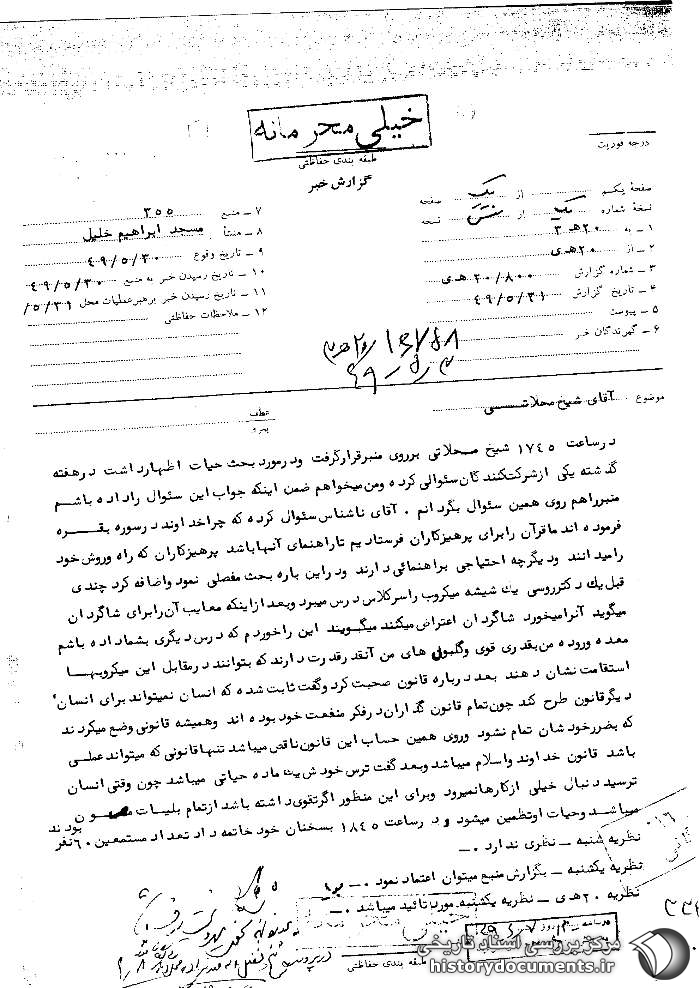 خیلی محرمانه
طبقه بندی حفاظتی
گزارش خبر
درجه فوریت
صفحهٔ یکم از یک صفحه
نسخهٔ شماره یک از شش نسخه
۱ ـ به ۲۰ هـ ۳
۲ ـ از ۲۰ هـ ی
۳ ـ شماره گزارش ۲۰/۸۰۰ هـ ی
۴ ـ تاریخ گزارش ۴۹/۵/۳۱
۵ ـ پیوست
۶ ـ گیرندگان خبر
۷ ـ منبع ۳۵۵
۸ ـ منشأ مسجد ابراهیم خلیل
۹ ـ تاریخ وقوع ۴۹/۵/۳۰
۱۰ ـ تاریخ رسیدن خبر به منبع ۴۹/۵/۳۰
۱۱ ـ تاریخ رسیدن خبر برهبر عملیات محل ۵/۳۱/
۱۲ ـ ملاحظات حفاظتی
موضوع آقای شیخ محلاتی
عطف
پیرو
درساعت ۱۷۴۵ شیخ محلاتی برروی منبرقرارگرفت ودرمورد بحث حیات اظهارداشت درهفته
گذشته یکی ازشرکت‌کنندگان سئوالی کرده ومن میخواهم ضمن اینکه جواب این سئوال راداده باشم
منبرراهم روی همین سئوال بگردانم . آقای ناشناس سئوال کرده که چراخداوند درسوره بقره
فرموده اندماقرآن رابرای پرهیزکاران فرستادیم تاراهنمای آنهاباشد پرهیزکاران که راه وروش خود
رامیدانند ودیگرچه احتیاجی براهنمائی دارند ودراین باره بحث مفصلی نمود واضافه کرد چندی
قبل یک دکترروسی یک شیشه میکروب راسرکلاس درس میبرد وبعدازاینکه معایب آن رابرای شاگردان
میگوید آنرامیخورد شاگردان اعتراض میکنند میگویند این راخوردم که درس دیگری بشماداده باشم
معده وروده من بقدری قوی وگلبول های من آنقدرقدرت دارندکه بتوانند درمقابل این میکروبها
استقامت نشان دهند بعددرباره قانون صحبت کردوگفت ثابت شده که انسان نمیتواندبرای انسان
دیگرقانون طرح کند چون تمام قانون گذاران درفکر منفعت خودبوده اند وهمیشه قانونی وضع میکردند
که بضررخودشان تمام نشود وروی همین حساب این قانون ناقص میباشد تنهاقانونی که میتواندعملی
باشد قانون خداوند واسلام میباشد وبعدگفت ترس خودش یک ماده حیاتی میباشد چون وقتی انسان
ترسید دنبال خیلی ازکارهانمیرود وبرای این منظور اگرتقوی داشته باشد ازتمام بلیات مصون
میباشد وحیات اوتنظیم میشود و درساعت ۱۸۴۵ بسخنان خودخاتمه داد تعداد مستمعین ۶۰نفر بودند
نظریه شنبه ـ نظری ندارد ۰ـ
نظریه یکشنبه ـ بگزارش منبع میتوان اعتماد نمود ۰ـ
نظریه ۲۰ هـ ی ـ نظریه یکشنبه مورد تائید میباشد ۰ـ
طبقه بندی حفاظتی
مرکز بررسی اسناد تاریخی
historydocuments.ir